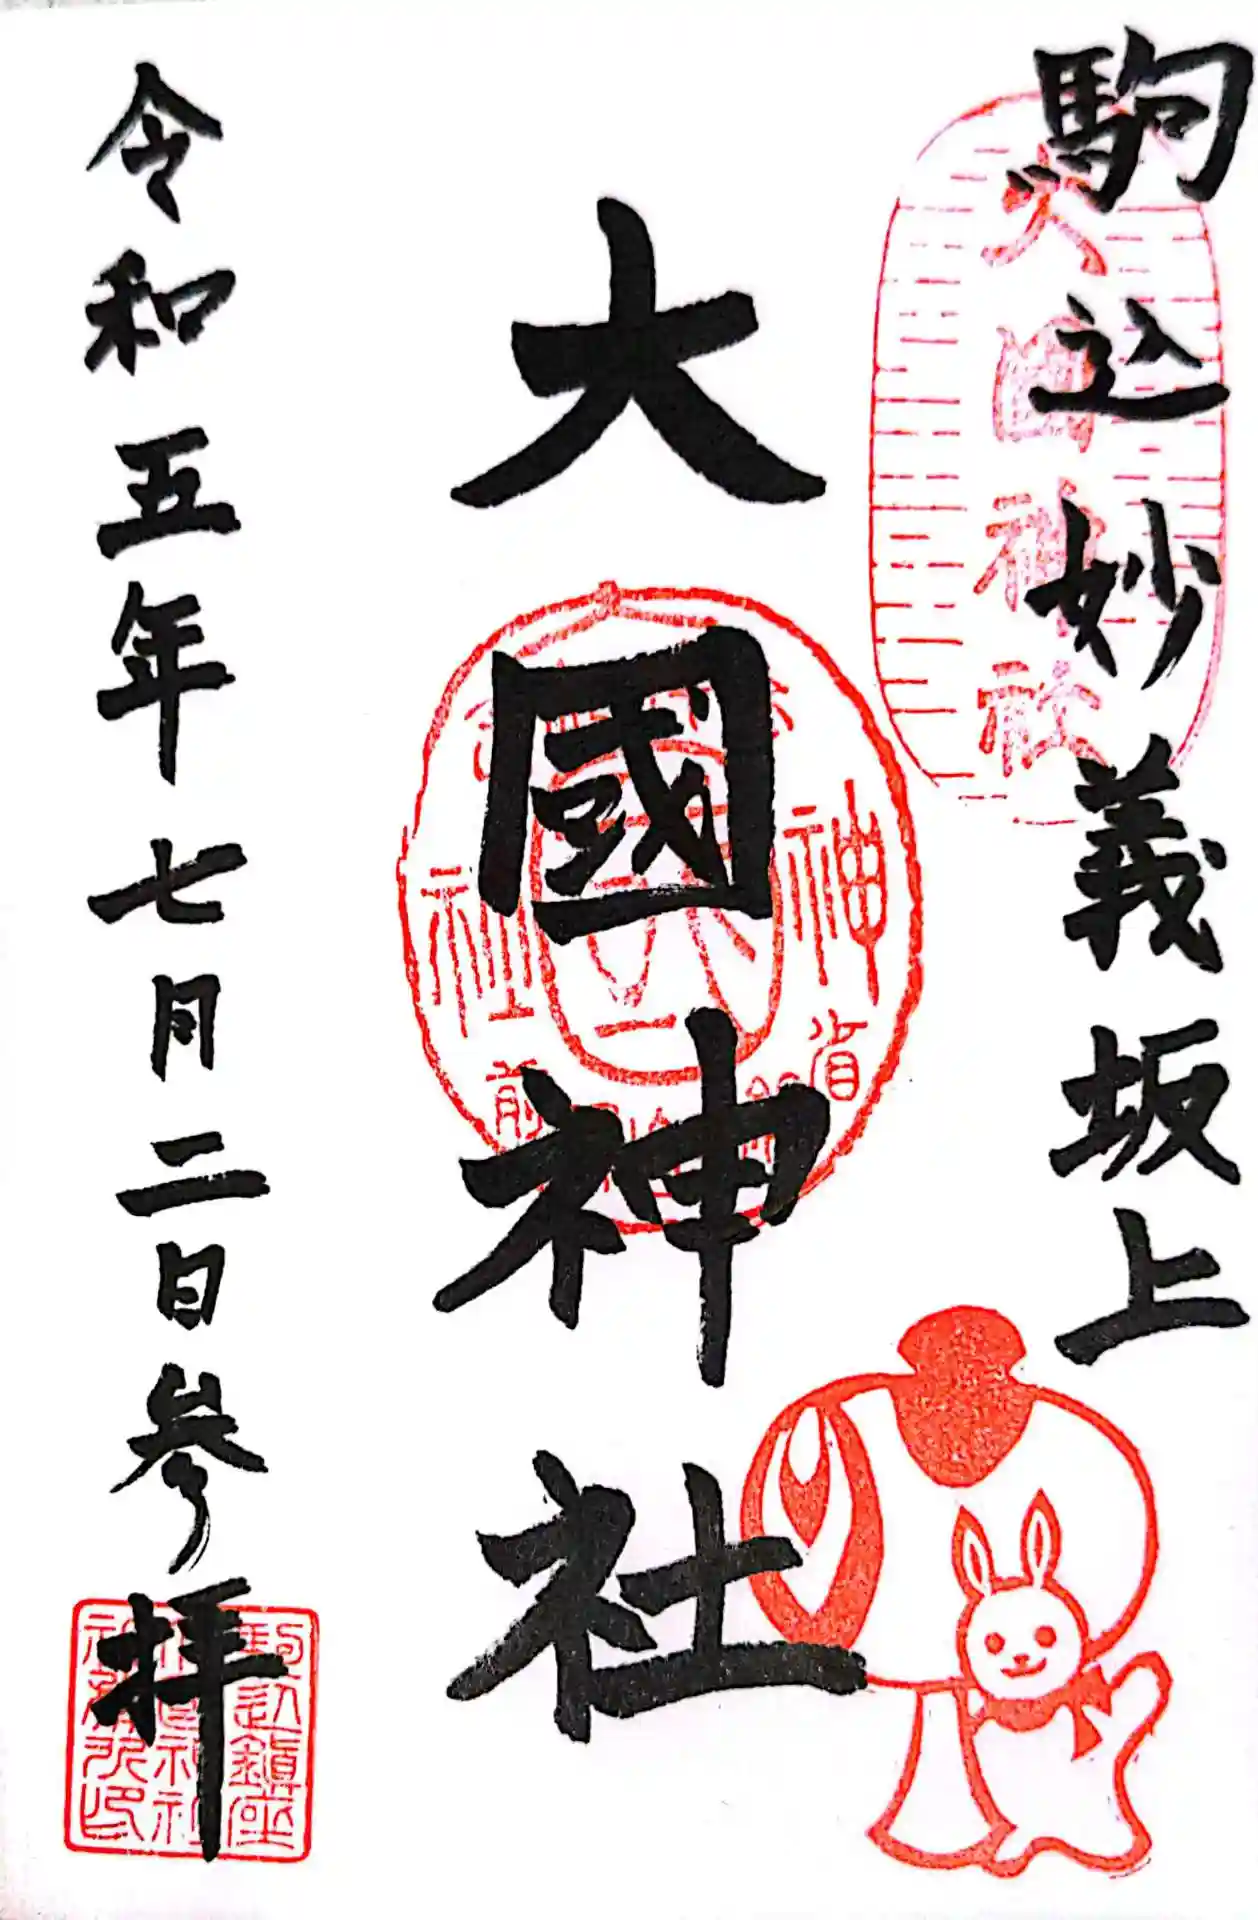 駒込妙義坂上
大國神社
大國神社
令和五年七月二日参拝